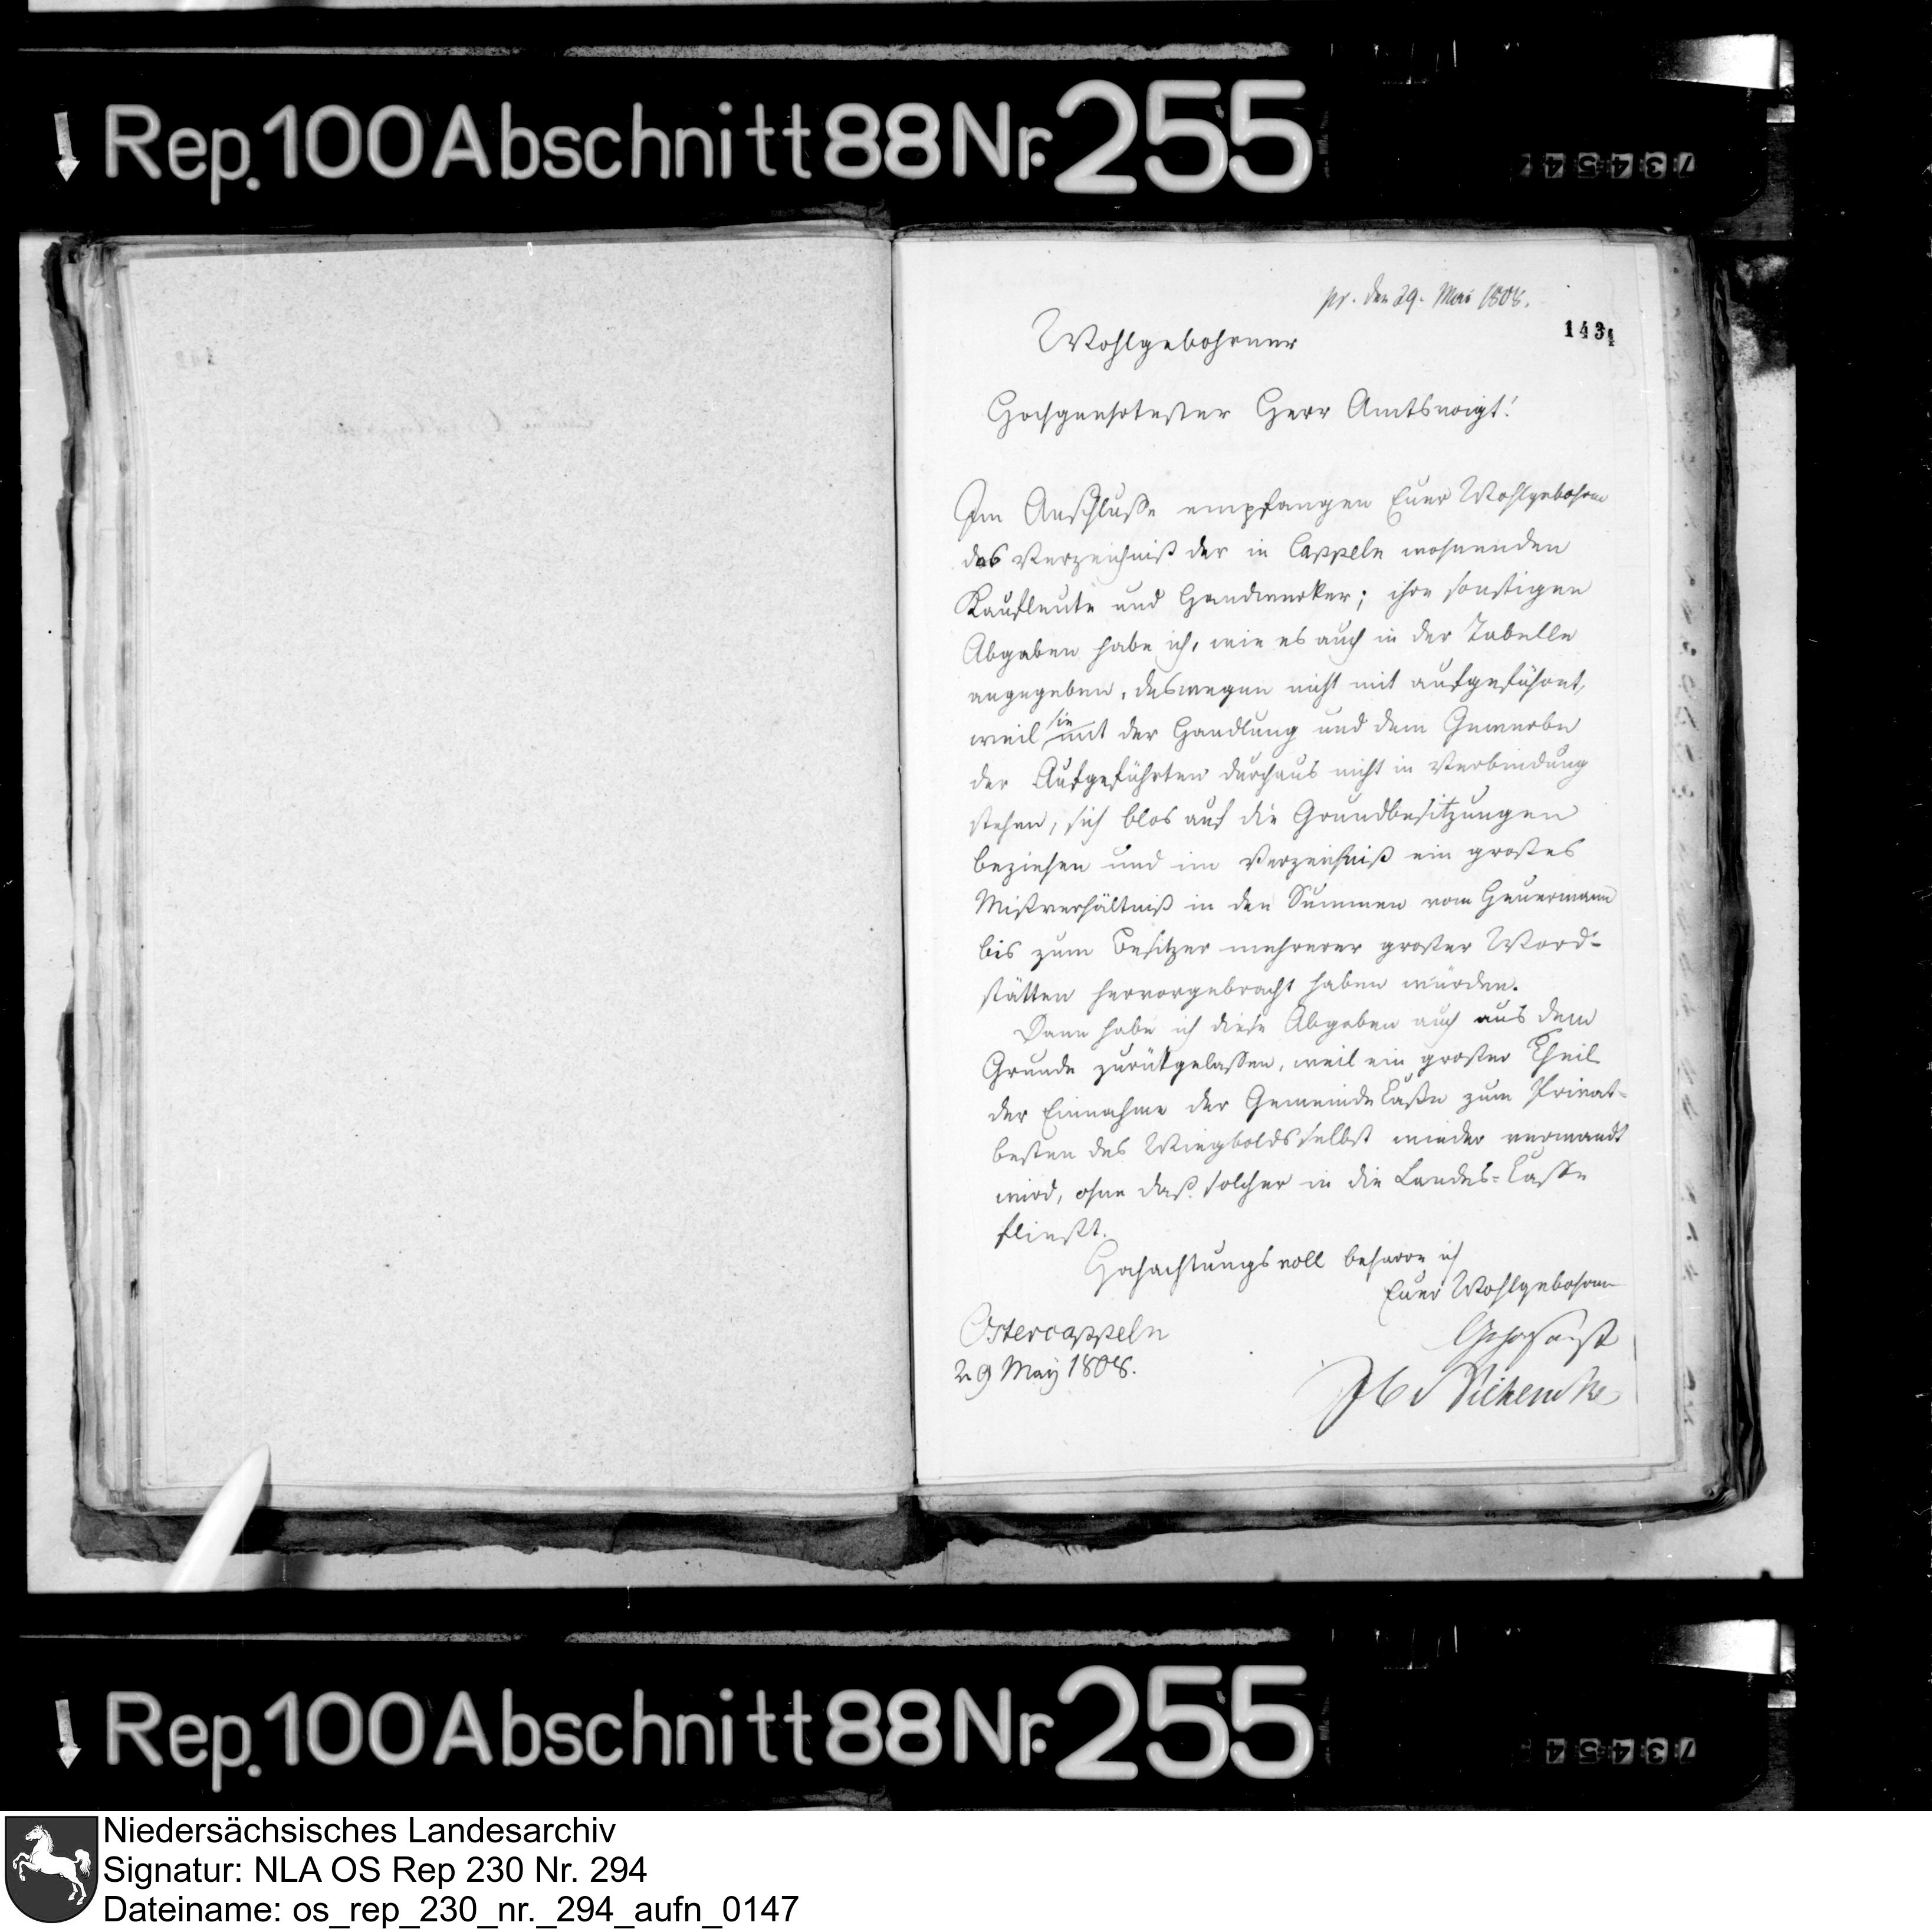 Rep. 100 Abschnitt 88 Nr. 255
73454
pr. den 29. Mai 1808.
143
Wohlgebohrner
Hochgeehrtester Herr Amtsvoigt!
Im Anschluße empfangen Euer Wohlgebohrn
das Verzeichniß der in Cappeln wohnenden
Kaufleute und Handwerker; ihre sonstigen
Abgaben habe ich, wie es auch in der Tabelle
angegeben, deswegen nicht mit aufgeführt,
weil sie mit der Handlung und dem Gewerbe
der Aufgeführten durchaus nicht in Verbindung
stehen, sich blos auf die Grundbesitzungen
beziehen und im Verzeichniß ein großes
Mißverhältniß in den Summen vom Heuermann
bis zum Besitzer mehrerer großer Word-
stätten hervorgebracht haben würden.
Dann habe ich diese Abgaben auch aus dem
Grunde zurükgelaßen, weil ein großer Theil
der Einnahme der Gemeinde Caße zum Privat-
besten des Wiegbolds selbst wieder verwandt
wird, ohne daß solcher in die Landes-Casse
fließt.
Hochachtungsvoll beharre ich
Euer Wohlgebohrn
Ostercappeln
29 May 1808.
Gehorsamst
Rep. 100 Abschnitt 88 Nr. 255
73454
Niedersächsisches Landesarchiv
Signatur: NLA OS Rep 230 Nr. 294
Dateiname: os_rep_230_nr._294_aufn_0147